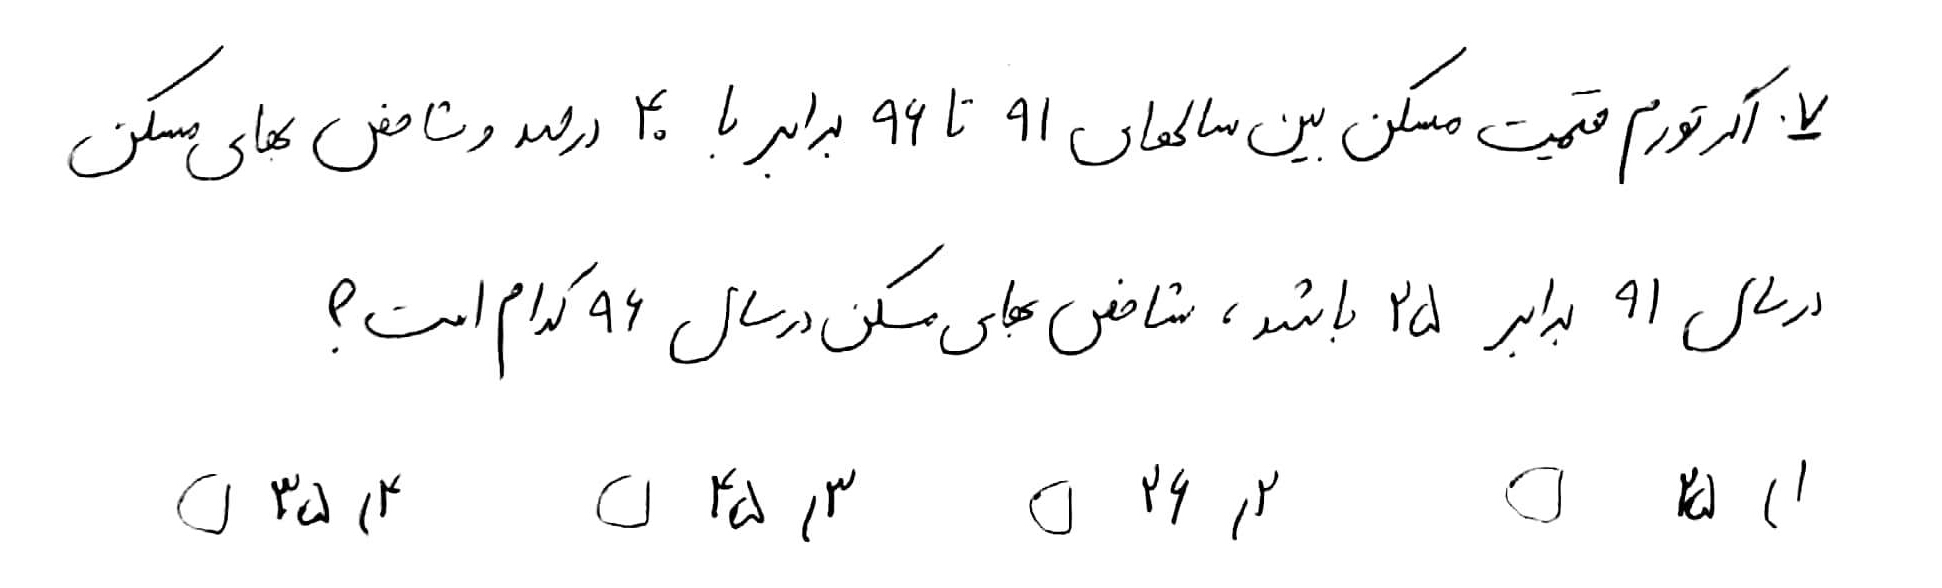 ۷. اگر تورم قیمت مسکن بین سالهای ۹۱ تا ۹۶ برابر با ۴۰ درصد و شاخص بهای مسکن
در سال ۹۱ برابر ۲۵ باشد، شاخص بهای مسکن در سال ۹۶ کدام است؟
۱) ۲۵ ۲) ۲۶ ۳) ۴۵ ۴) ۳۵